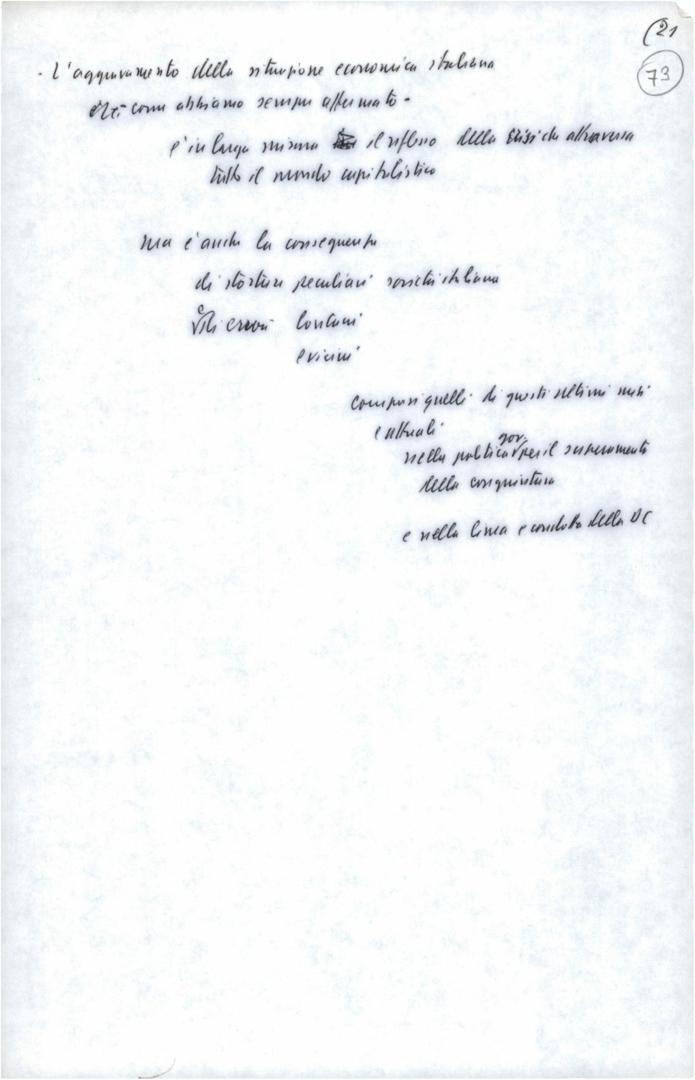 (21
73
- L'aggravamento della situazione economica italiana
come abbiamo sempre affermato -
è in larga misura il riflesso della crisi che attraversa
tutto il mondo capitalistico
ma è anche la conseguenza
di storture peculiari società italiana
e di errori lontani
e vicini
compresi quelli di questi ultimi mesi
e attuali
nella politica gov. per il superamento
della congiuntura
e nella linea e condotta della DC